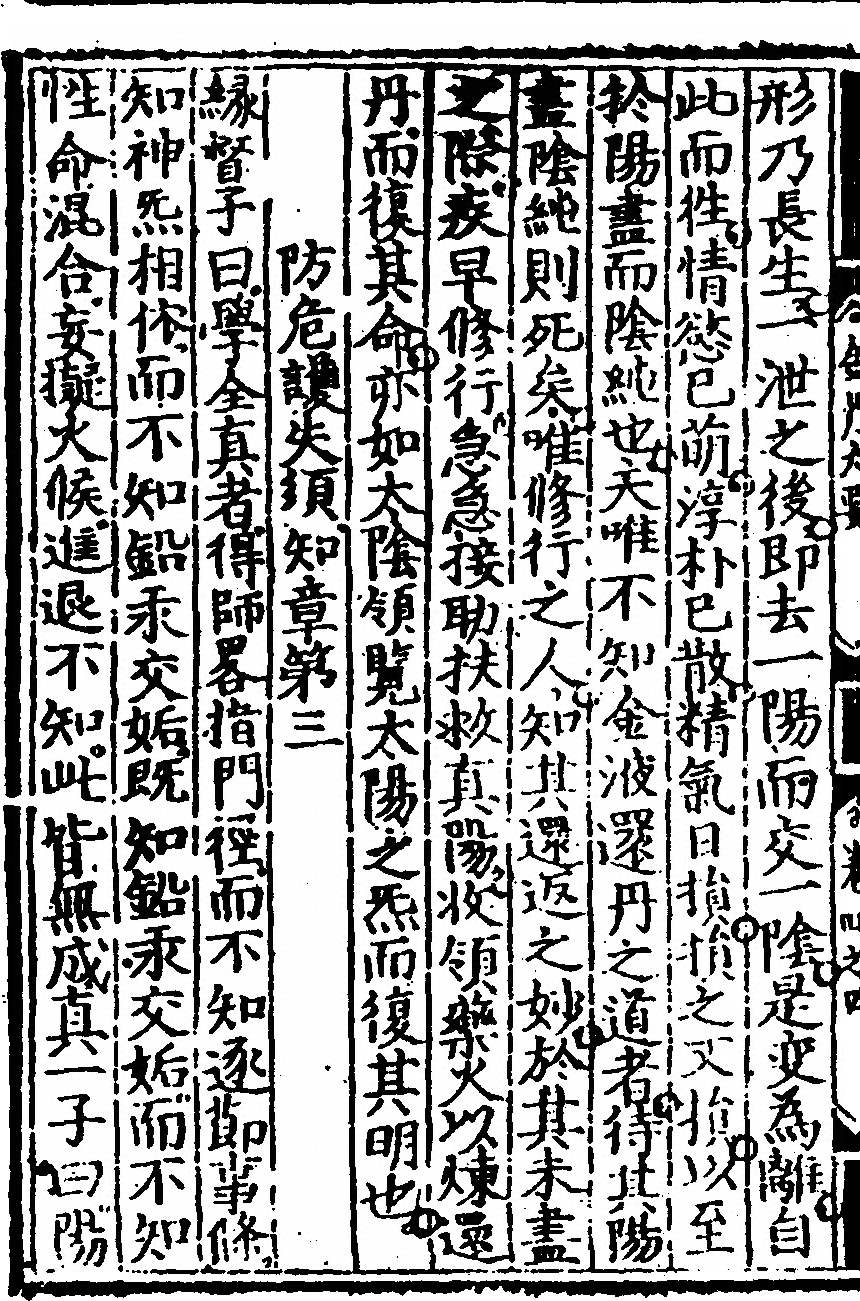 形乃長生一泄之後即去一陽而交一陰是变為離自
此而徃情慾已萌淳朴已散精氣日損損之又損以至
於陽盡而陰純也夫唯不知金液還丹之道者待其陽
盡陰純則死矣唯修行之人知其還返之妙於其未盡
之際疾早修行急急接助扶救真陽收領藥火以煉還
丹而復其命亦如太陰領覽太陽之炁而復其明也
防危護失須知章第三
緣督子曰學全真者得師畧指門徑而不知逐節事條
知神炁相依而不知鉛汞交姤既知鉛汞交姤而不知
性命混合妄擬火候進退不知此皆無成真一子曰陽